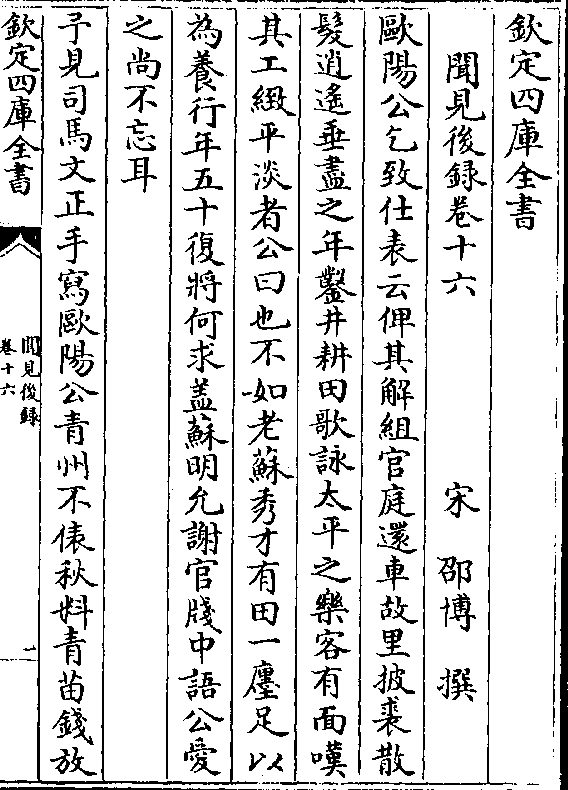 欽定四庫全書
聞見後録卷十六
宋 邵博 撰
歐陽公乞致仕表云俾其解組官庭還車故里披裘散
髮逍遙垂盡之年鑿井耕田歌詠太平之樂客有面嘆
其工緻平淡者公曰也不如老蘇秀才有田一廛足以
為養行年五十復將何求盖蘇明允謝官牋中語公愛
之尚不忘耳
予見司馬文正手寫歐陽公青州不俵秋料青苗錢放
欽定四庫全書
聞見後録
卷十六
一